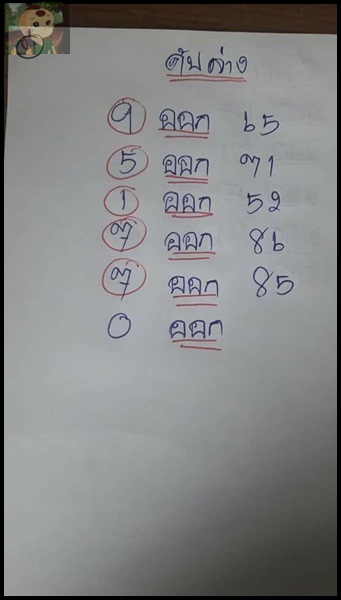 ดับล่าง
9 ออก 65
5 ออก 71
1 ออก 52
7 ออก 86
7 ออก 85
0 ออก